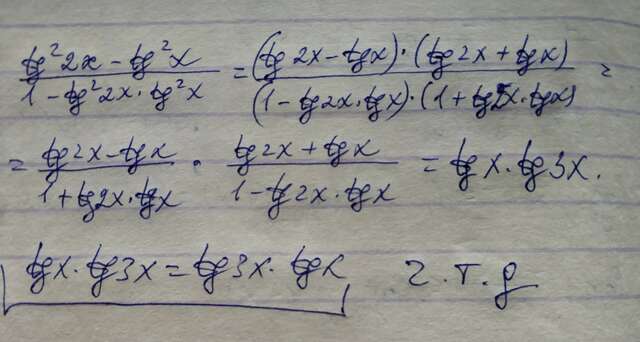 (tg²2x - tg²x)/(1 - tg²2x · tg²x) = ((tg 2x - tgx) · (tg2x + tgx))/((1 - tg2x · tgx) · (1 + tg2x · tgx)) =
= (tg2x - tgx)/(1 + tg2x · tgx) · (tg2x + tgx)/(1 - tg2x · tgx) = tgx · tg3x.
tgx · tg3x = tg3x · tgx ч.т.д